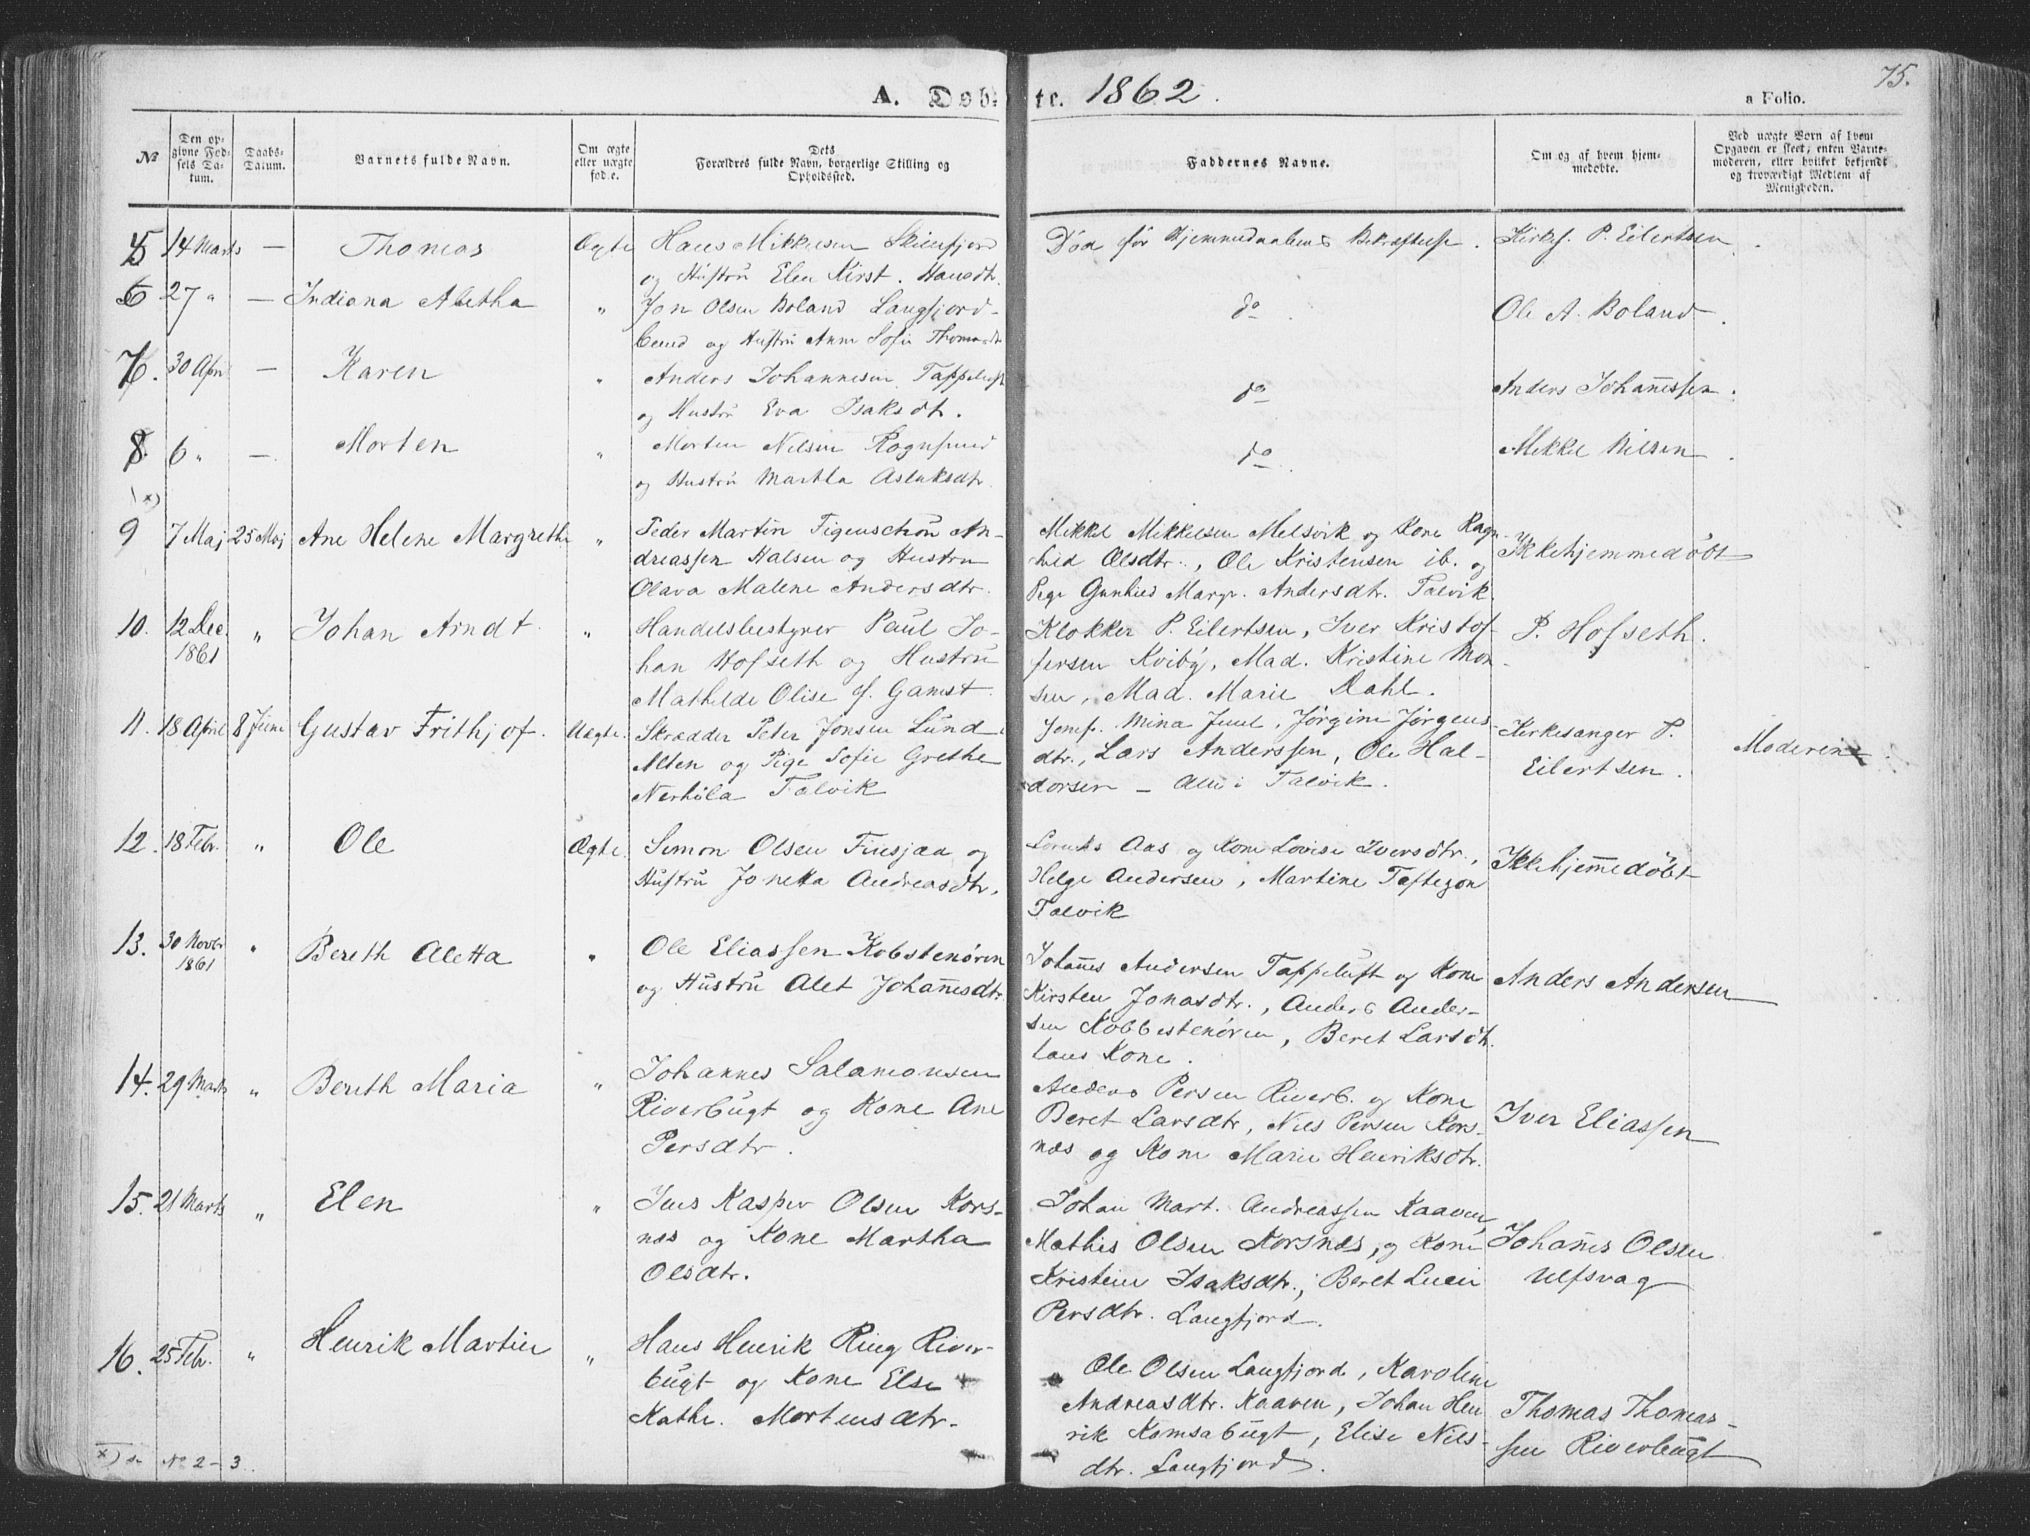 A. Døbte. 1862.
a Folio.
75.
№
Den opgivne Fødsels Datum.
Daabs-Datum.
Barnets fulde Navn.
Om ægte eller uægte fød.e.
Dets Forældres fulde Navn, borgerlige Stilling og Opholdssted.
Faddernes Navne.
Om og af hvem hjemmedøbte.
Ved uægte Børn af hvem Opgaven er skeet; enten Barnemoderen, eller hvilket bekjendt og troværdigt Medlem af Menigheden.
5 14 Marts — Thomas Ægte Hans Mikkelsen
og Hustru Elen Kirst. Hansdtr.
Død før Hjemmedaabens Bekræftelse. Kirkes. P. Eilertsen.
6 27 " — Indiana Aletha " Jon Olsen Boland Langfjord-
bund og Hustru Anne Sofie Thomasdtr
do Ole A. Boland.
7. 30 April — Karen " Anders Johannesen Tappeluft
og Hustru Eva Isaksdtr.
do Anders Johannessen.
8. 6 " — Morten " Morten Nilsen Rognsund
og Hustru Martha Aslaksdtr.
do Mikkel Nilsen.
x)
9 7 Maj 25 Maj Ane Helene Margrethe " Peder Martin Figenschou An-
dreassen Halsen og Hustru
Olava Malene Andersdtr.
Mikkel Mikkelsen Melsvik og Kone Ragn-
hild Olsdtr., Ole Kristensen ib. og
Pige Gunhild Margr. Andersdtr. Talvik.
Ikkehjemmedøbt
10. 12 Dec. 1861 " Johan Arndt. " Handelsbestyrer Paul Jo-
han Hofseth og Hustru
Mathilde Olise f. Gamst.
Klokker P. Eilertsen, Iver Kristof-
fersen Kviby, Mad. Kristine Mon-
sen, Mad. Marie Dahl.
P. Hofseth.
11. 18 April 8 Juni Gustav Frithjof. Uægte. Skrædder Peter Jonsen Lund
Alten og Pige Sofie Grethe
Talvik
Jomf. Mina Juul, Jørgine Jørgens-
dtr., Lars Anderssen, Ole Hal-
dorsen — Alle i Talvik.
Kirkesanger P.
Eilertsen.
Moderen
12. 18 Febr. " Ole Ægte. Simon Olsen Finsjaa og
Hustru Jonetta Andreasdtr.
Aas og Kone Lovise Iversdtr.,
Helge Andersen, Martine Toftegon
Talvik
Ikkehjemmedöbt
13. 30 Novbr 1861 " Bereth Aletta " Ole Eliassen Kobstenøren
og Hustru Alet Johannesdtr.
Johannes Andersen Tappeluft og Kone
Kirsten Jonasdtr., Anders Ander-
sen Kobbestenøren, Beret Larsdtr.
hans Kone.
Anders Andersen
14. 29 Marts " Bereth Maria " Johannes Salamonsen
Riverbugt og Kone Ane
Persdtr.
Anders Persen Riverb. og Kone
Beret Larsdtr, Nils Persen Kors-
næs og Kone Marie Henriksdtr.
Iver Eliassen
15. 21 Marts " Elen " Jens Kasper Olsen Kors-
næs og Kone Martha
Olsdtr.
Johan Mart. Andreassen Kaaven,
Mathis Olsen Korsnæs, og Kone
Kristine Isaksdtr., Beret Lucie
Persdtr. Langfjord.
Johannes Olsen
Ulfsvag
16. 25 Febr. " Henrik Martin " Hans Henrik Ring River-
bugt og Kone Else
Kathr. Mortensdtr.
Ole Olsen Langfjord, Karoline
Andreasdtr. Kaaven, Johan Hen
rik Komsabugt, Elise Nils-
dtr. Langfjord.
Thomas Thomas-
sen Riverbugt
x) se № 2-3.